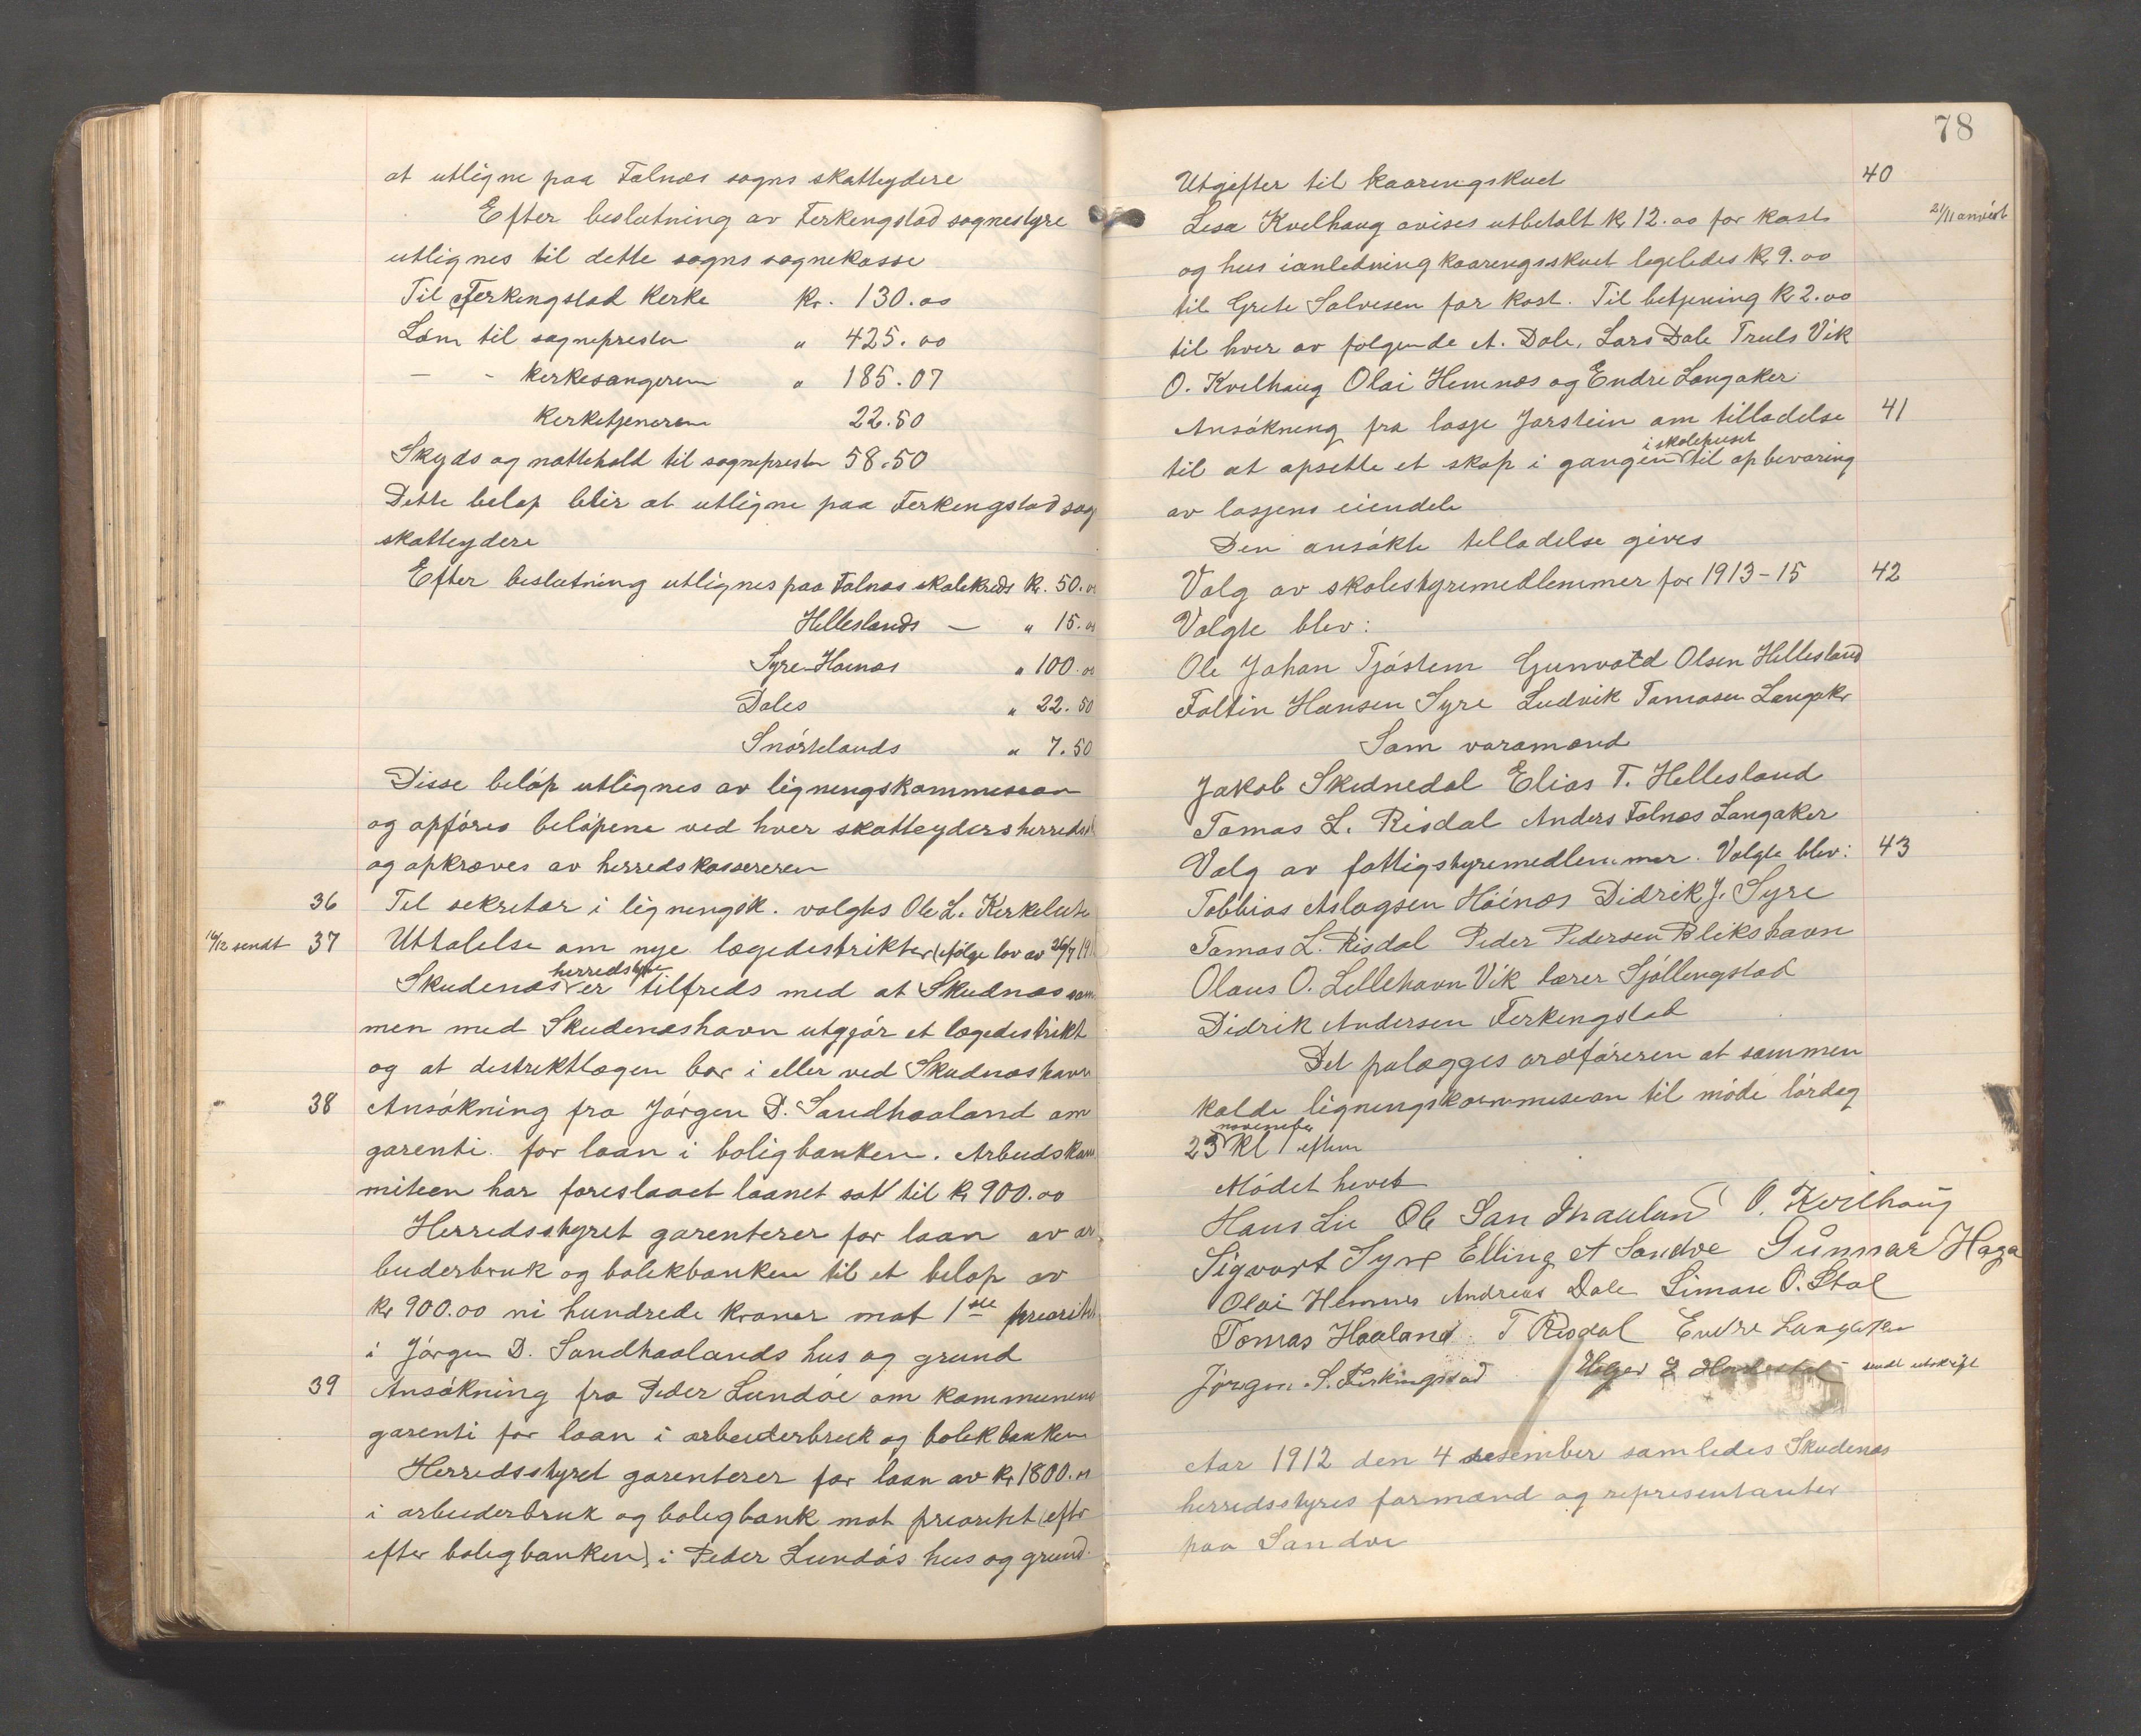 at utligne paa Falnæs sogns skatteydere
Efter beslutning av Ferkingstad sognestyre
utlignes til dette sogns sognekasse
Til Ferkingstad kirke kr. 130.00
Løn til sognepresten " 425.00
— - kirkesangeren " 185.07
kirketjeneren 22.50
Skyds og nattehold til sognepresten 58.50
Dette beløp blir at utligne paa Ferkingstad sog
skatteydere
Efter beslutning utlignes paa Falnæs skolekreds kr. 50.00
Hilleslands — " 15.00
Syre-Høinæs " 100.00
Dales " 22.50
Snørtelands " 7.50
Disse beløp utlignes av ligningskommission
og opføres beløpene ved hver skatteyders herreds
og opkræves av herredskassereren
36 Til sekretær i ligningsk. valgtes Ole L. Kirkeleite
16/12 sendt 37 Uttalelse om nye lægedistrikter ifølge lov av 26/7 19
Skudenæs herredstyre er tilfreds med at Skudnæs sam
men med Skudenæshavn utgjør et lægedistrikt
og at distriktlægen bor i eller ved Skudnæshavn
38 Ansøkning fra Jørgen D. Sandhaaland om
garenti for laan i boligbanken. Arbeidskom
miteen har foreslaaet laanet sat til kr 900.00
Herredsstyret garenterer for laan av ar
beiderbruk og bolikbanken til et beløp av
kr 900.00 ni hundrede kroner mot 1ste prioritet
i Jørgen D. Sandhaalands hus og grund
39 Ansøkning fra Peder Lundøe om kommunens
garenti for laan i arbeiderbruk og bolikbanken
Herredsstyret garenterer for laan av kr 1800.00
i arbeiderbruk og boligbank mot prioritet (efter
efter boligbanken) i Peder Lundøs hus og grund.
78
Utgifter til kaaringskuet 40
Lisa Kvilhaug avises utbetalt kr 12.00 for kost 21/11 anvist
og hus i anledning kaaringsskuet ligeledes kr 9.00
til Grete Salvesen for kost. Til betjening kr 2.00
til hver av følgende A. Dale, Lars Dale Truls Vik
O. Kvilhaug Olai Hemnæs og Endre Langaker
Ansøkning fra losje Jarstein om tilladelse 41
til at opsette et skap i gangen i skolehuset til opbevaring
av losjens eiendele
Den ansøkte tilladelse gives
Valg av skolestyremedlemmer for 1913-15 42
Valgte blev:
Ole Johan Tjøstem Gunvald Olsen Hillesland
Foltin Hansen Syre Ludvik Tomasen Langakr
Som varamænd
Jakob Skidnedal Elias T. Hillesland
Tomas L. Risdal Anders Falnæs Langaker
Valg av fattigstyremedlemmer. Valgte blev: 43
Tobbias Aslagsen Høinæs Didrik J. Syre
Tomas L. Risdal Peder Pedersen Blikshavn
Olaus O. Lillehavn Vik lærer Sjøllingstad
Didrik Andersen Ferkingstad
Det palægges ordføreren at sammen
kalde ligningskommission til møde lørdag
23 november kl 1 eftem
Mødet hevet
Hans Lie Ole Sandhaaland O. Kvilhaug
Sigvart Syre Elling A Sandve Gunnar Haga
Olai Hemnes Andreas Dale Simon O. Stol
Tomas Haaland. T Risdal Endre Langaker
Jørgen. S. Ferkingstad Holger E sendt utskrift
Aar 1912 den 4 desember samledes Skudenæs
herredsstyres formænd og representanter
paa Sandve